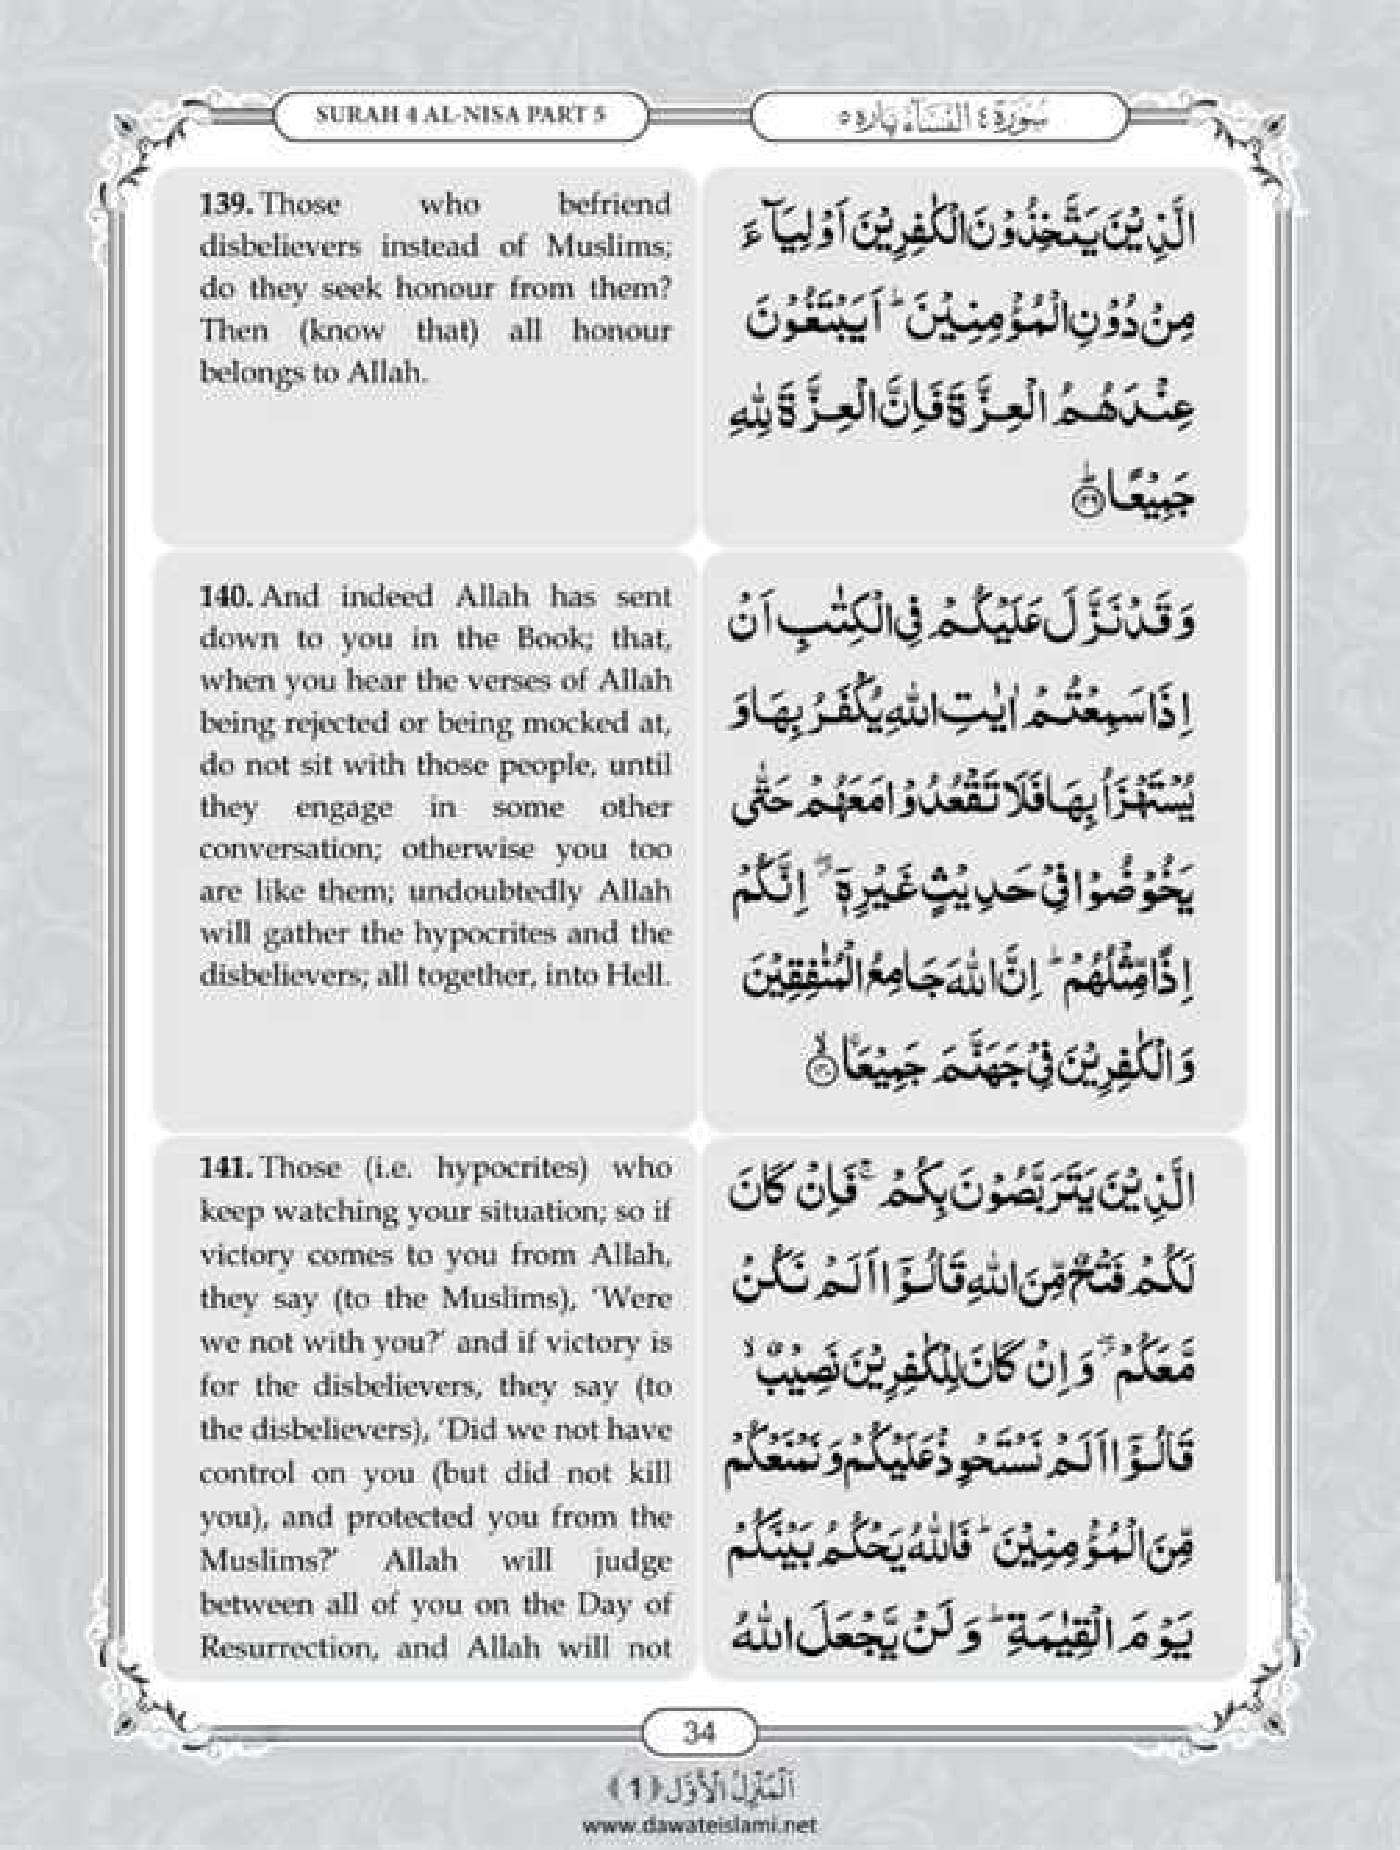 SURAH 4 AL-NISA PART 5
سُوْرَة ٤ النِّسَآء پاره ٥
139. Those who befriend
disbelievers instead of Muslims;
do they seek honour from them?
Then (know that) all honour
belongs to Allah.
الَّذِيْنَ يَتَّخِذُوْنَ الْكٰفِرِيْنَ اَوْلِيَآءَ
مِنْ دُوْنِ الْمُؤْمِنِيْنَ ؕ اَيَبْتَغُوْنَ
عِنْدَهُمُ الْعِزَّةَ فَاِنَّ الْعِزَّةَ لِلّٰهِ
جَمِيْعًا ؕ ﴿۱۳۹﴾
140. And indeed Allah has sent
down to you in the Book; that,
when you hear the verses of Allah
being rejected or being mocked at,
do not sit with those people, until
they engage in some other
conversation; otherwise you too
are like them; undoubtedly Allah
will gather the hypocrites and the
disbelievers; all together, into Hell.
وَ قَدْ نَزَّلَ عَلَيْكُمْ فِى الْكِتٰبِ اَنْ
اِذَا سَمِعْتُمْ اٰيٰتِ اللّٰهِ يُكْفَرُ بِهَا وَ
يُسْتَهْزَاُ بِهَا فَلَا تَقْعُدُوْا مَعَهُمْ حَتّٰى
يَخُوْضُوْا فِىْ حَدِيْثٍ غَيْرِهٖۤ ۖ اِنَّكُمْ
اِذًا مِّثْلُهُمْ ؕ اِنَّ اللّٰهَ جَامِعُ الْمُنٰفِقِيْنَ
وَ الْكٰفِرِيْنَ فِىْ جَهَنَّمَ جَمِيْعَۨا ۙ ﴿۱۴۰﴾
141. Those (i.e. hypocrites) who
keep watching your situation; so if
victory comes to you from Allah,
they say (to the Muslims), ‘Were
we not with you?’ and if victory is
for the disbelievers, they say (to
the disbelievers), ‘Did we not have
control on you (but did not kill
you), and protected you from the
Muslims?’ Allah will judge
between all of you on the Day of
Resurrection, and Allah will not
الَّذِيْنَ يَتَرَبَّصُوْنَ بِكُمْ ۚ فَاِنْ كَانَ
لَكُمْ فَتْحٌ مِّنَ اللّٰهِ قَالُوْۤا اَلَمْ نَكُنْ
مَّعَكُمْ ۖ وَ اِنْ كَانَ لِلْكٰفِرِيْنَ نَصِيْبٌ ۙ
قَالُوْۤا اَلَمْ نَسْتَحْوِذْ عَلَيْكُمْ وَ نَمْنَعْكُمْ
مِّنَ الْمُؤْمِنِيْنَ ؕ فَاللّٰهُ يَحْكُمُ بَيْنَكُمْ
يَوْمَ الْقِيٰمَةِ ؕ وَ لَنْ يَّجْعَلَ اللّٰهُ
34
اَلْمَنْزِلُ الْاَوَّل ﴿1﴾
www.dawateislami.net